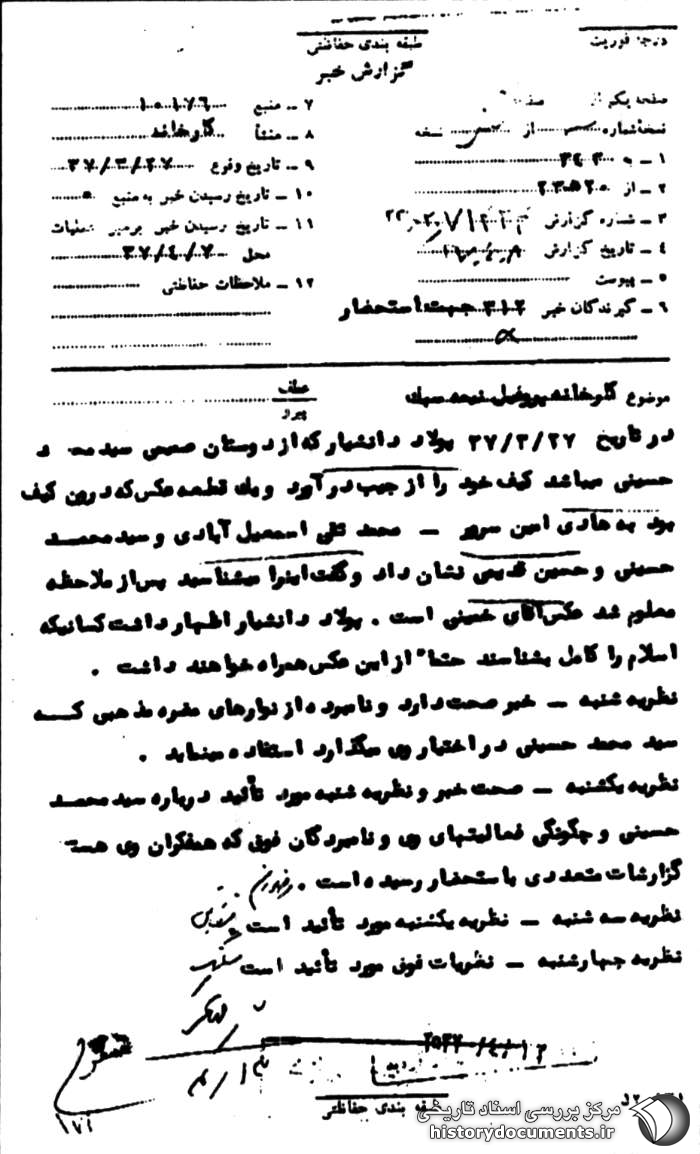 درجه فوریت
طبقه بندی حفاظتی
گزارش خبر
نسخه شماره از نسخه
۱ ــ به ۳۱۲
۳ ــ شماره گزارش
۴ ــ تاریخ گزارش
۵ ــ پیوست
۶ ــ گیرندگان خبر ۳۱۲ جهت استحضار
۷ ــ منبع ۱۰۱۷۶
۸ ــ منشأ گلوخانه
۹ ــ تاریخ وقوع ۳۷/۳/۲۷
۱۰ ــ تاریخ رسیدن خبر به منبع
۱۱ ــ تاریخ رسیدن خبر برهبر عملیات
محل ۳۷/۴/۷
۱۲ ــ ملاحظات حفاظتی
موضوع
عطف
پیرو
در تاریخ ۳۷/۳/۲۷ پولاد دانشیار که از دوستان صمیمی سید محمد
حسینی میباشد کیف خود را از جیب در آورد و یک قطعه عکس که درون کیف
بود به هادی امین سرور ــ محمد تقی اسمعیل آبادی و سید محمد
حسینی و حسین قدیمی نشان داد و گفت اینرا میشناسید پس از ملاحظه
معلوم شد عکس آقای خمینی است . پولاد دانشیار اظهار داشت کسانیکه
اسلام را کامل بشناسند حتماً از این عکس همراه خواهند داشت .
نظریه شنبه ــ خبر صحت دارد و نامبرده از نوارهای مضره مذهبی کــه
سید محمد حسینی در اختیار وی میگذارد استفاده مینماید .
نظریه یکشنبه ــ صحت خبر و نظریه شنبه مورد تأئید درباره سید محمد
حسینی و چگونگی فعالیتهای وی و نامبردگان فوق که همفکران وی هستند
گزارشات متعددی باستحضار رسیده است .
نظریه سه شنبه ــ نظریه یکشنبه مورد تأئید است
نظریه چهارشنبه ــ نظریات فوق مورد تأئید است
۱۷۱
طبقه بندی حفاظتی
مرکز بررسی اسناد تاریخی
historydocuments.ir